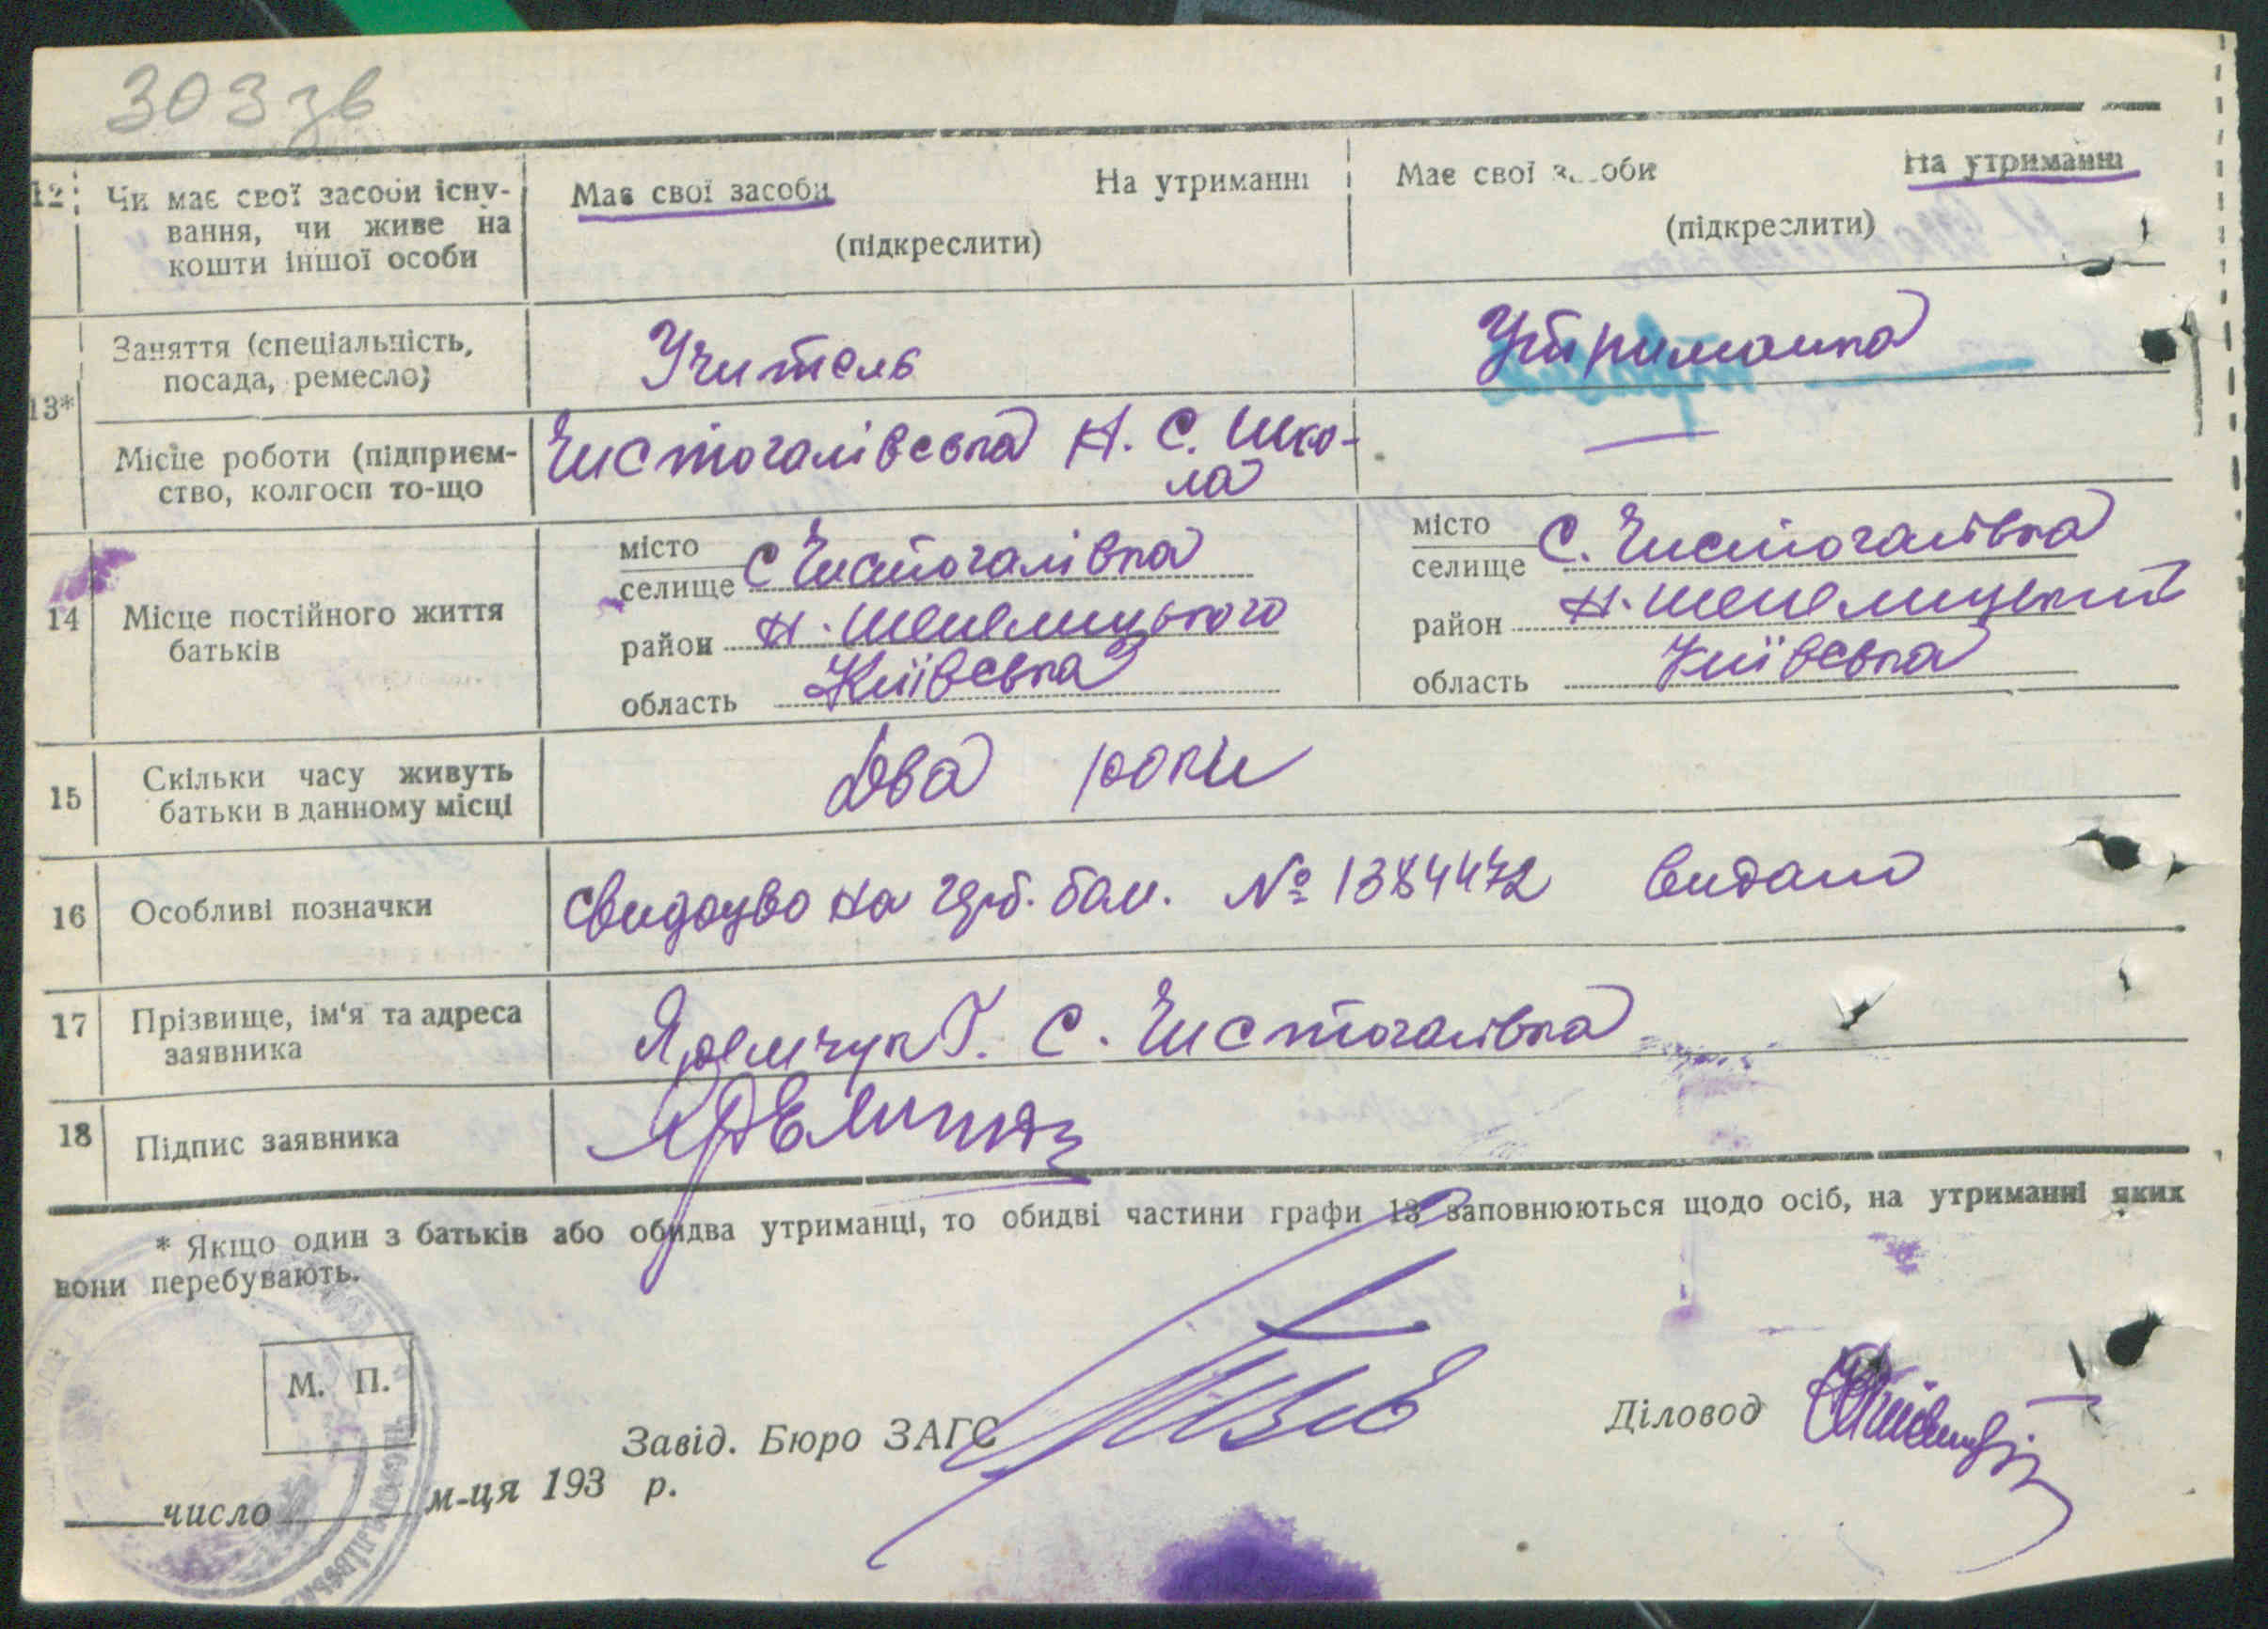 303 зв
12 Чи має свої засоби існу-
вання, чи живе на
кошти іншої особи
Має свої засоби На утриманні
(підкреслити)
Має свої засоби На утриманні
(підкреслити)
13* Заняття (спеціальність,
посада, ремесло)
Учитель
Утриманка
Місце роботи (підприєм-
ство, колгосп то-що
Чистогалівська Н. С. Шко-
ла
—
14 Місце постійного життя
батьків
місто
селище С Чистогалівка
район Н. Шепелицького
область Київська
місто
селище С. Чистогалівка
район Н. Шепелицький
область Київська
15 Скільки часу живуть
батьки в данному місці
Два роки
16 Особливі позначки
на герб. бам. № 1384472 видано
17 Прізвище, ім'я та адреса
заявника
Яремчук Г. С. Чистогалівка
18 Підпис заявника
* Якщо один з батьків або обидва утриманці, то обидві частини графи 13 заповнюються щодо осіб, на утриманні яких
вони перебувають.
М. П.
Завід. Бюро ЗАГС
Діловод
число м-ця 193 р.